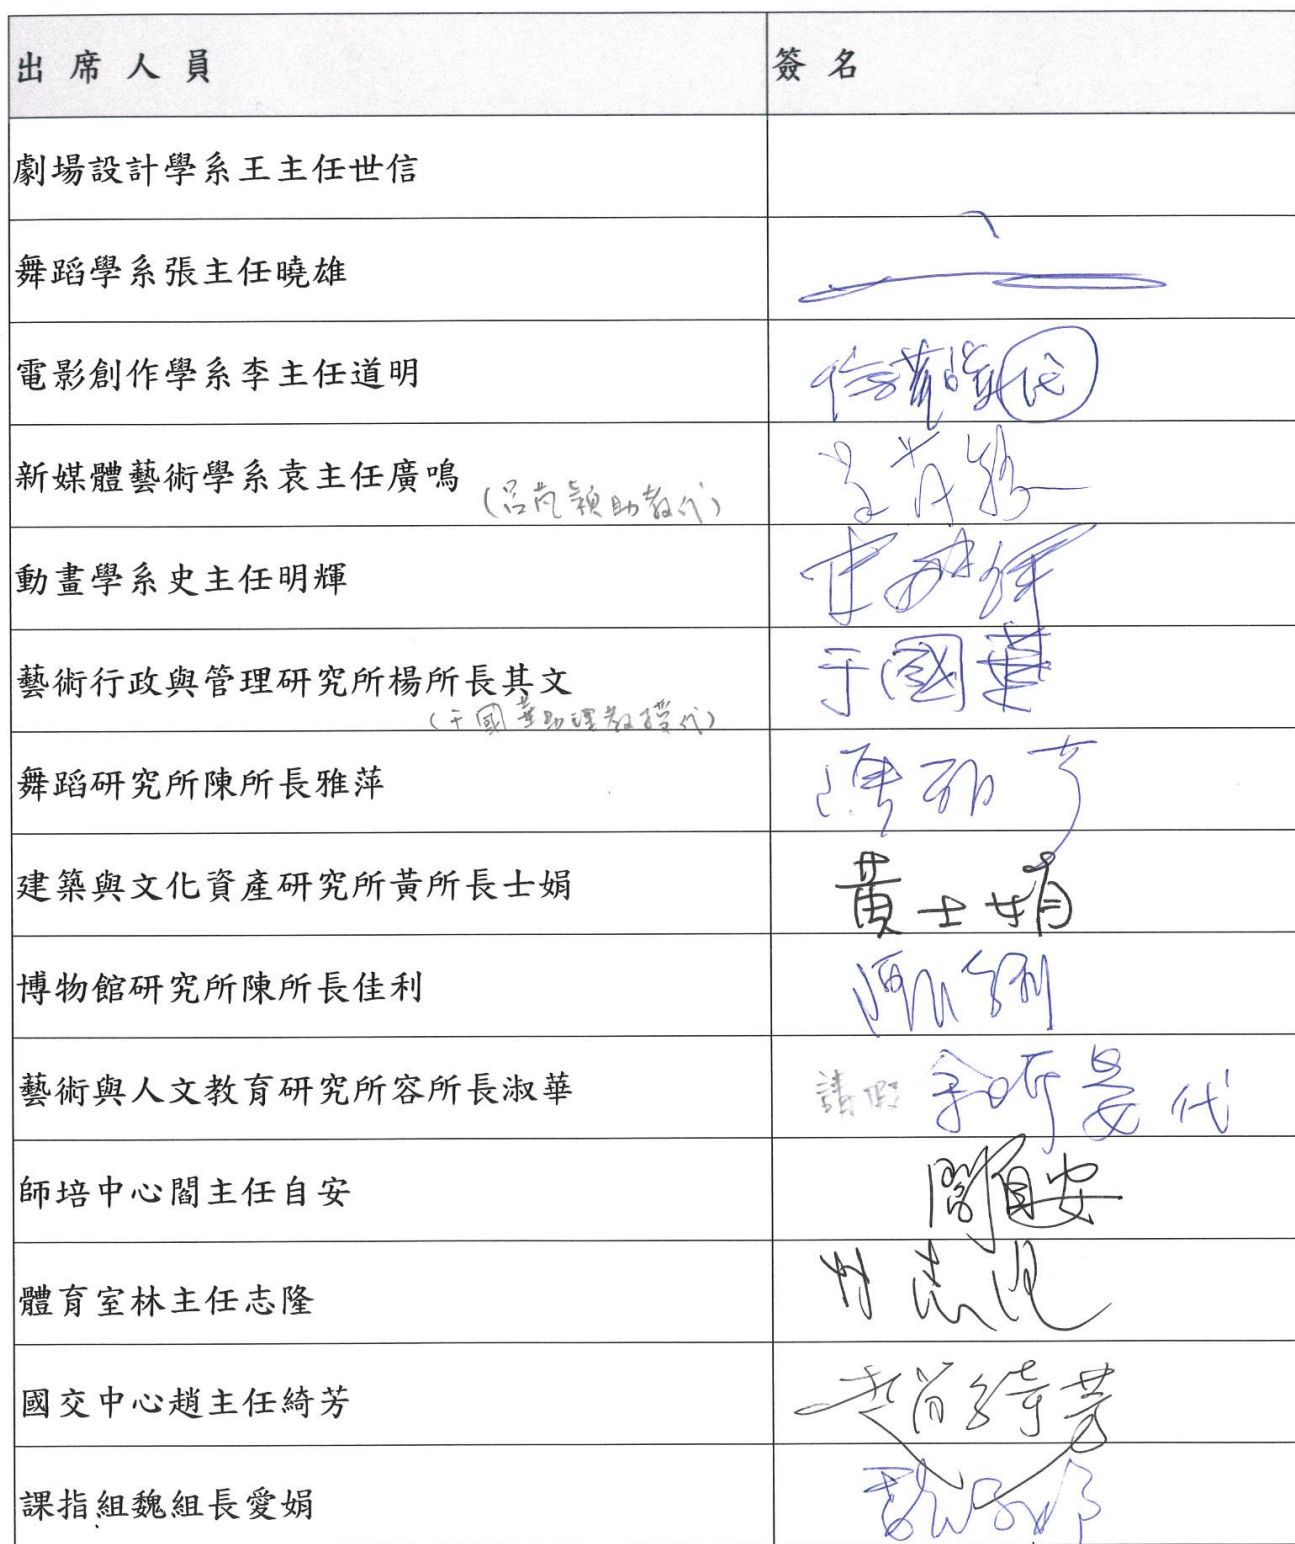 出席人員 簽名
劇場設計學系王主任世信
舞蹈學系張主任曉雄
電影創作學系李主任道明 代
新媒體藝術學系袁主任廣鳴
(呂芃穎助教代)
動畫學系史主任明輝 史明輝
藝術行政與管理研究所楊所長其文 于國華
(于國華助理教授代)
舞蹈研究所陳所長雅萍 陳雅萍
建築與文化資產研究所黃所長士娟 黃士娟
博物館研究所陳所長佳利 陳佳利
藝術與人文教育研究所容所長淑華 請假 代
師培中心閻主任自安 閻自安
體育室林主任志隆 林志隆
國交中心趙主任綺芳 趙綺芳
課指組魏組長愛娟